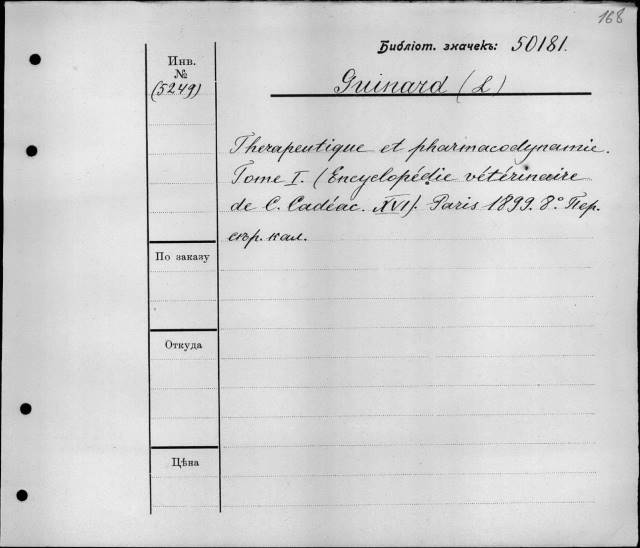 168
Библіот. значекъ: 50181.
Инв.
№
(5249)
Guinard (L)
Therapeutique et pharmacodynamie.
Tome I. (Encyclopédie vétérinaire
de C. Cadéac. XVI). Paris 1899. 8°. Пер.
кал.
По заказу
Откуда
Цѣна